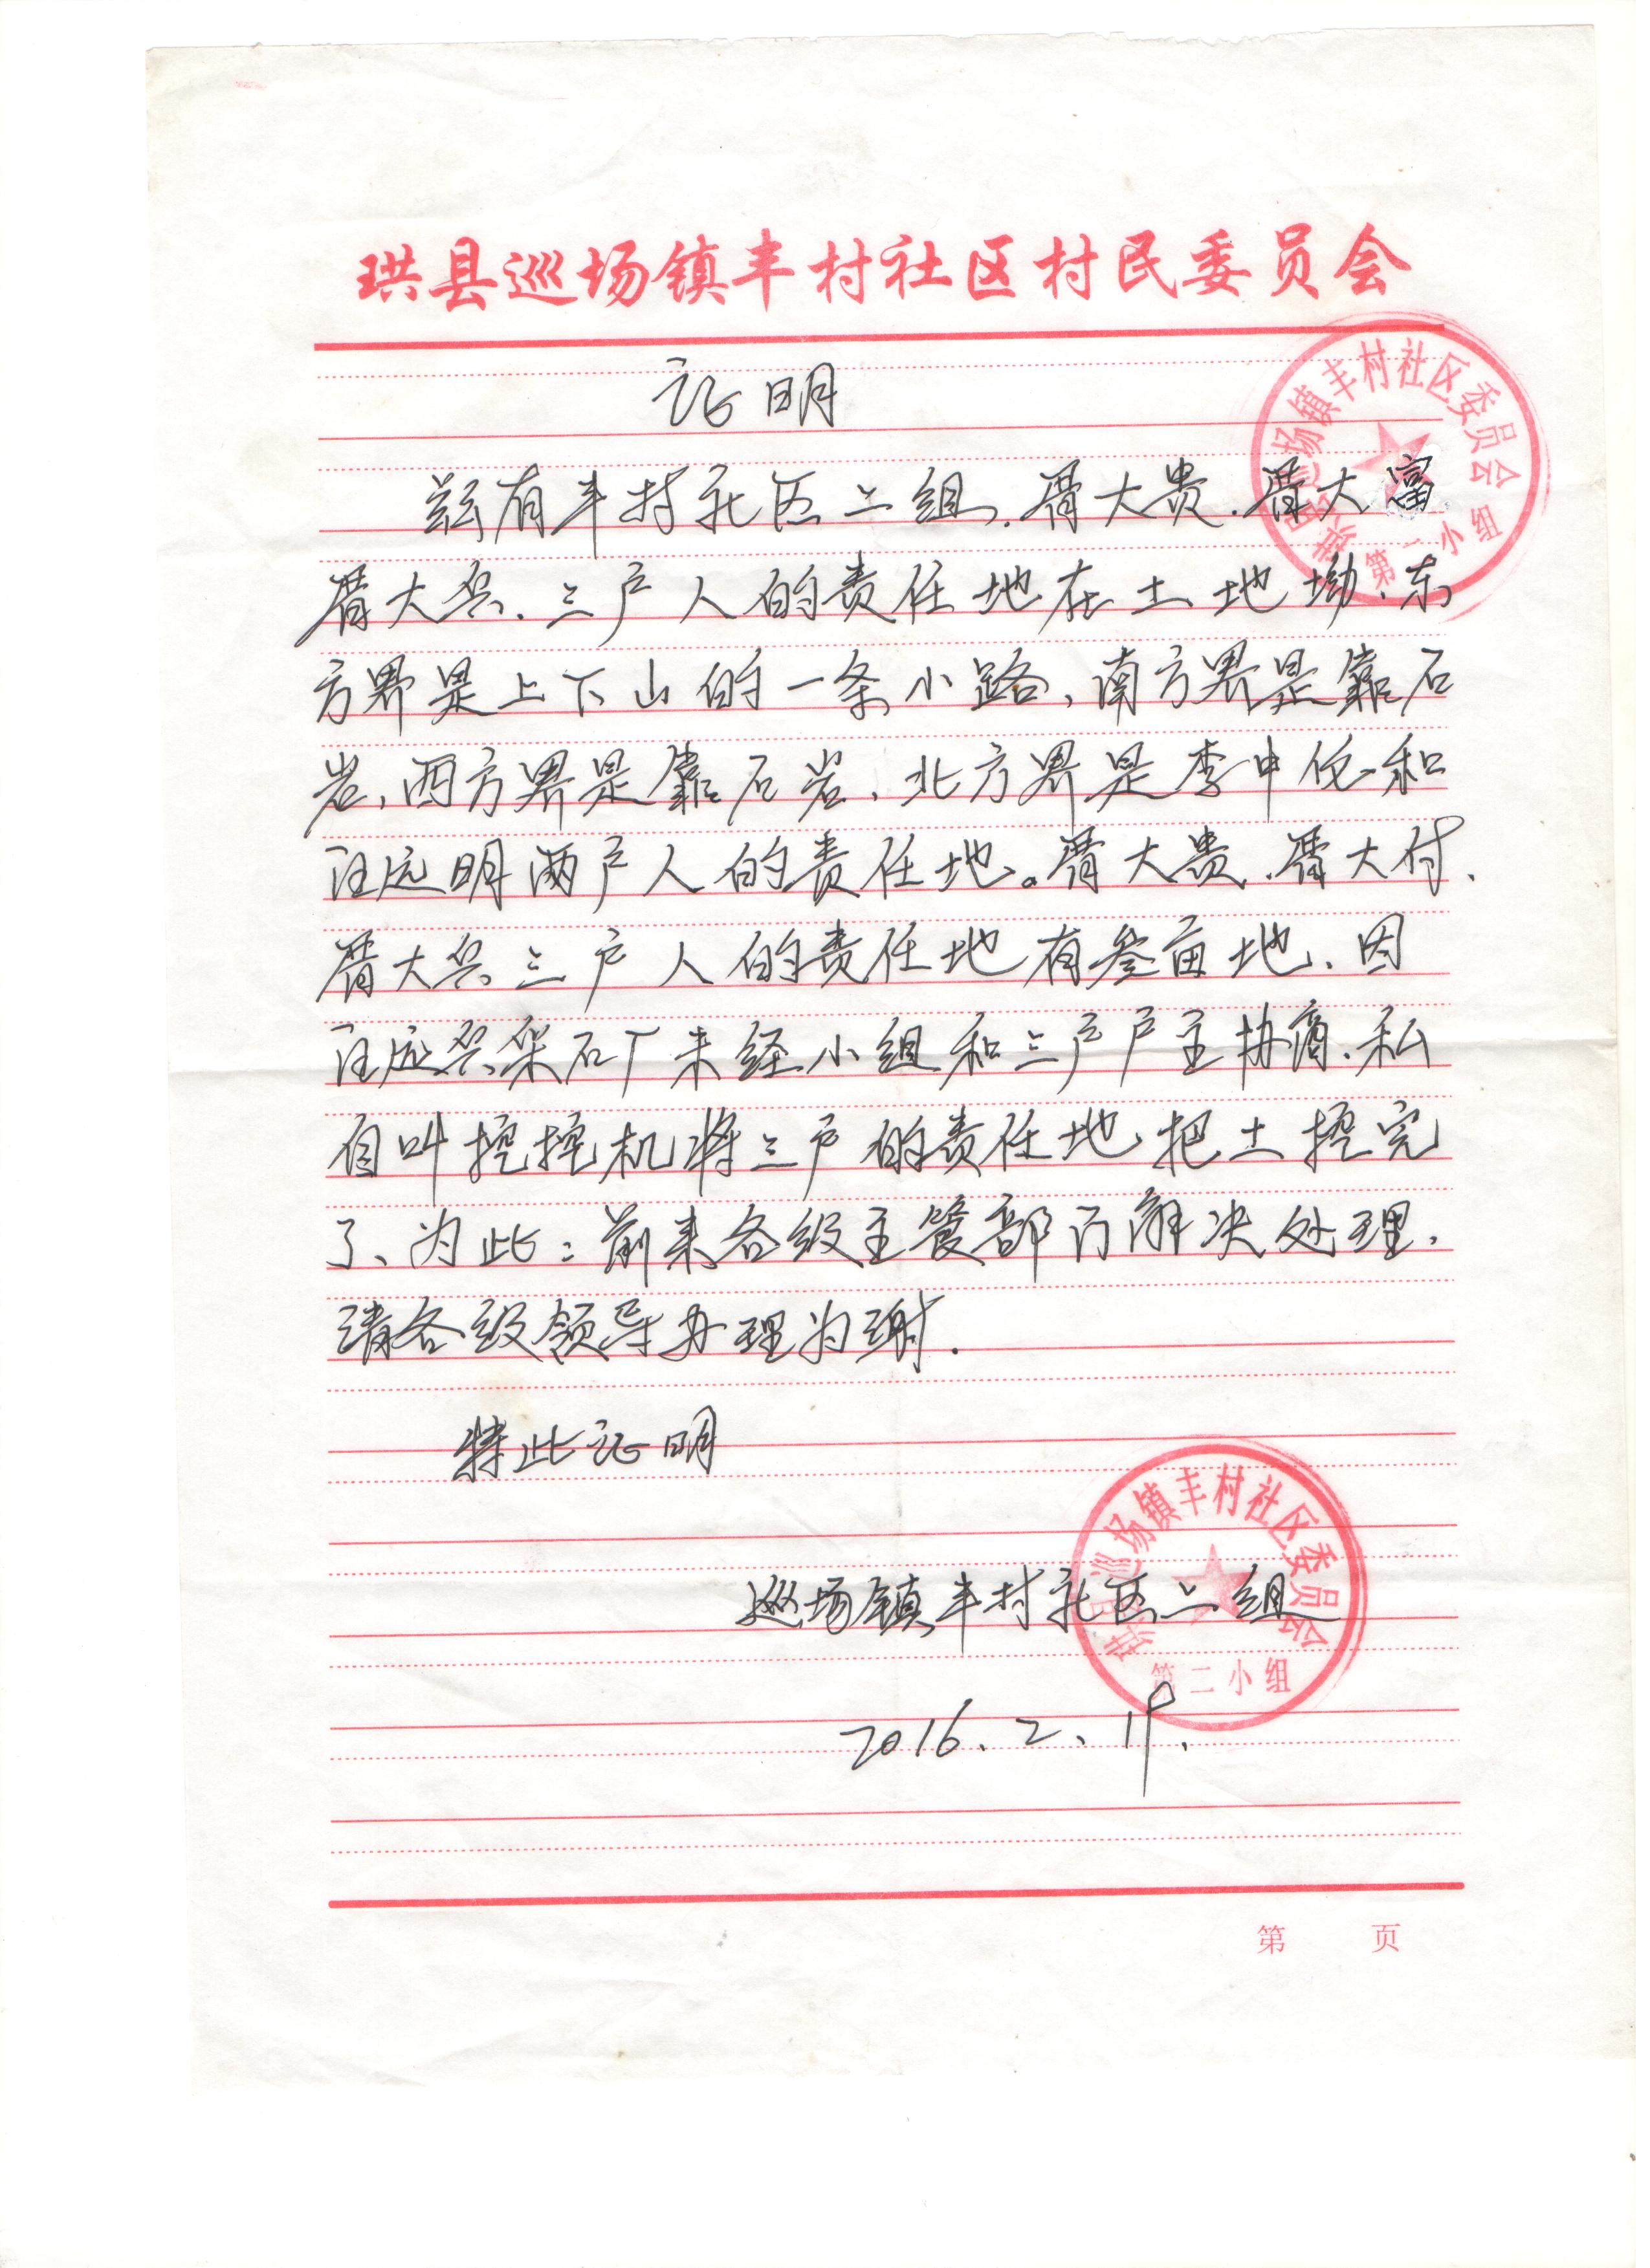 珙县巡场镇丰村社区村民委员会
证明
珙县巡场镇丰村社区委员会
第二小组
兹有丰村社区二组、胥大贵、胥大富
胥大兴、三户人的责任地在土地坳、东
方界是上下山的一条小路、南方界是靠石
岩、西方界是靠石岩、北方界是李中伦和
汪应明两户人的责任地。胥大贵、胥大付、
胥大兴三户人的责任地有叁亩地、因
汪应兴采石厂未经小组和三户户主协商、私
自叫挖挖机将三户的责任地把土挖完
了、为此：前来各级主管部门解决处理、
请各级领导办理为谢.
特此证明
巡场镇丰村社区二组
珙县巡场镇丰村社区委员会
第二小组
2016.2.19.
第 页